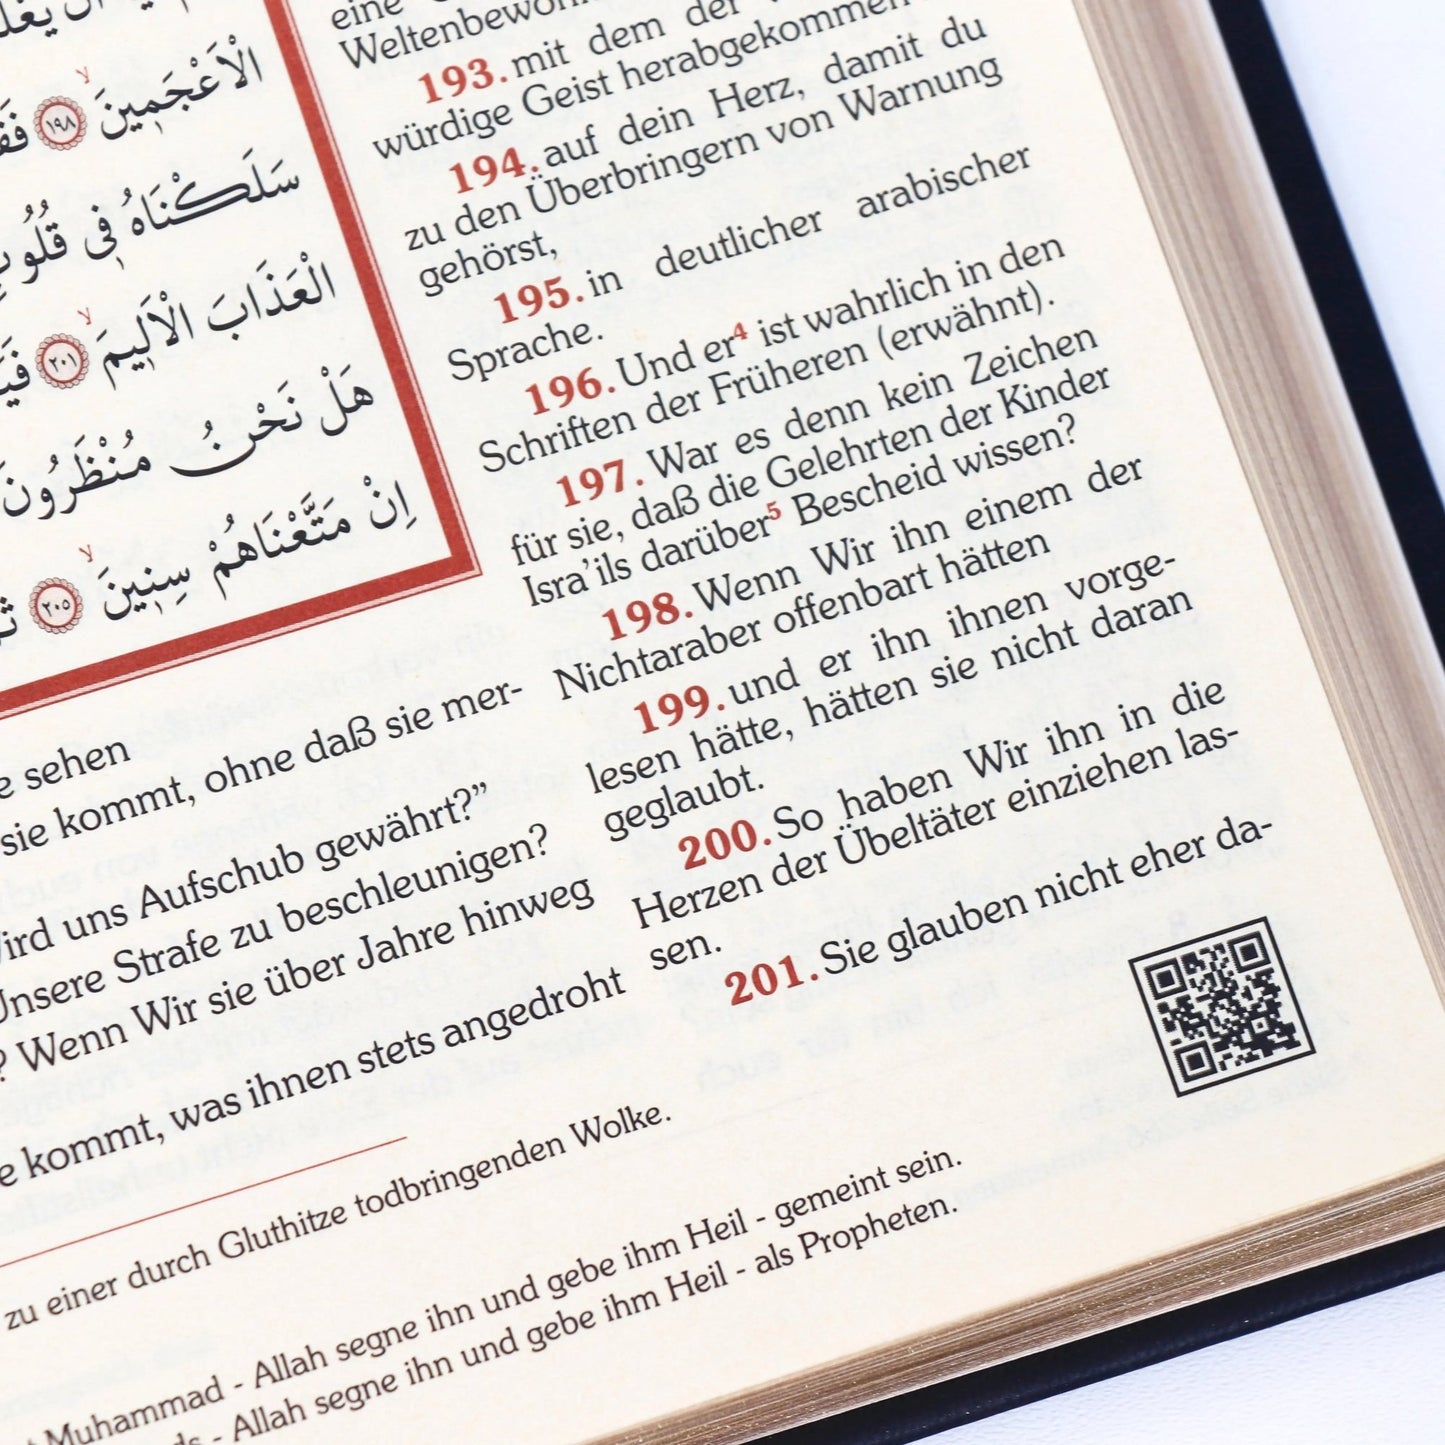 الْاَعْجَمِينَ ١٩٨
سَلَكْنَاهُ فِى
الْعَذَابَ الْاَلِيمَ ٢٠١
هَلْ نَحْنُ مُنْظَرُونَ
اِنْ مَتَّعْنَاهُمْ سِنِينَ ٢٠٥
eine
193. mit dem der
würdige Geist herabgekommen
194. auf dein Herz, damit du
zu den Überbringern von Warnung
gehörst,
195. in deutlicher arabischer
Sprache.
196. Und er⁴ ist wahrlich in den
Schriften der Früheren (erwähnt).
197. War es denn kein Zeichen
für sie, daß die Gelehrten der Kinder
Isra’ils darüber⁵ Bescheid wissen?
198. Wenn Wir ihn einem der
Nichtaraber offenbart hätten
199. und er ihn ihnen vorge-
lesen hätte, hätten sie nicht daran
geglaubt.
200. So haben Wir ihn in die
Herzen der Übeltäter einziehen las-
sen.
201. Sie glauben nicht eher da-
sehen
sie kommt, ohne daß sie mer-
uns Aufschub gewährt?”
Unsere Strafe zu beschleunigen?
? Wenn Wir sie über Jahre hinweg
kommt, was ihnen stets angedroht
zu einer durch Gluthitze todbringenden Wolke.
Muhammad - Allah segne ihn und gebe ihm Heil - gemeint sein.
- Allah segne ihn und gebe ihm Heil - als Propheten.